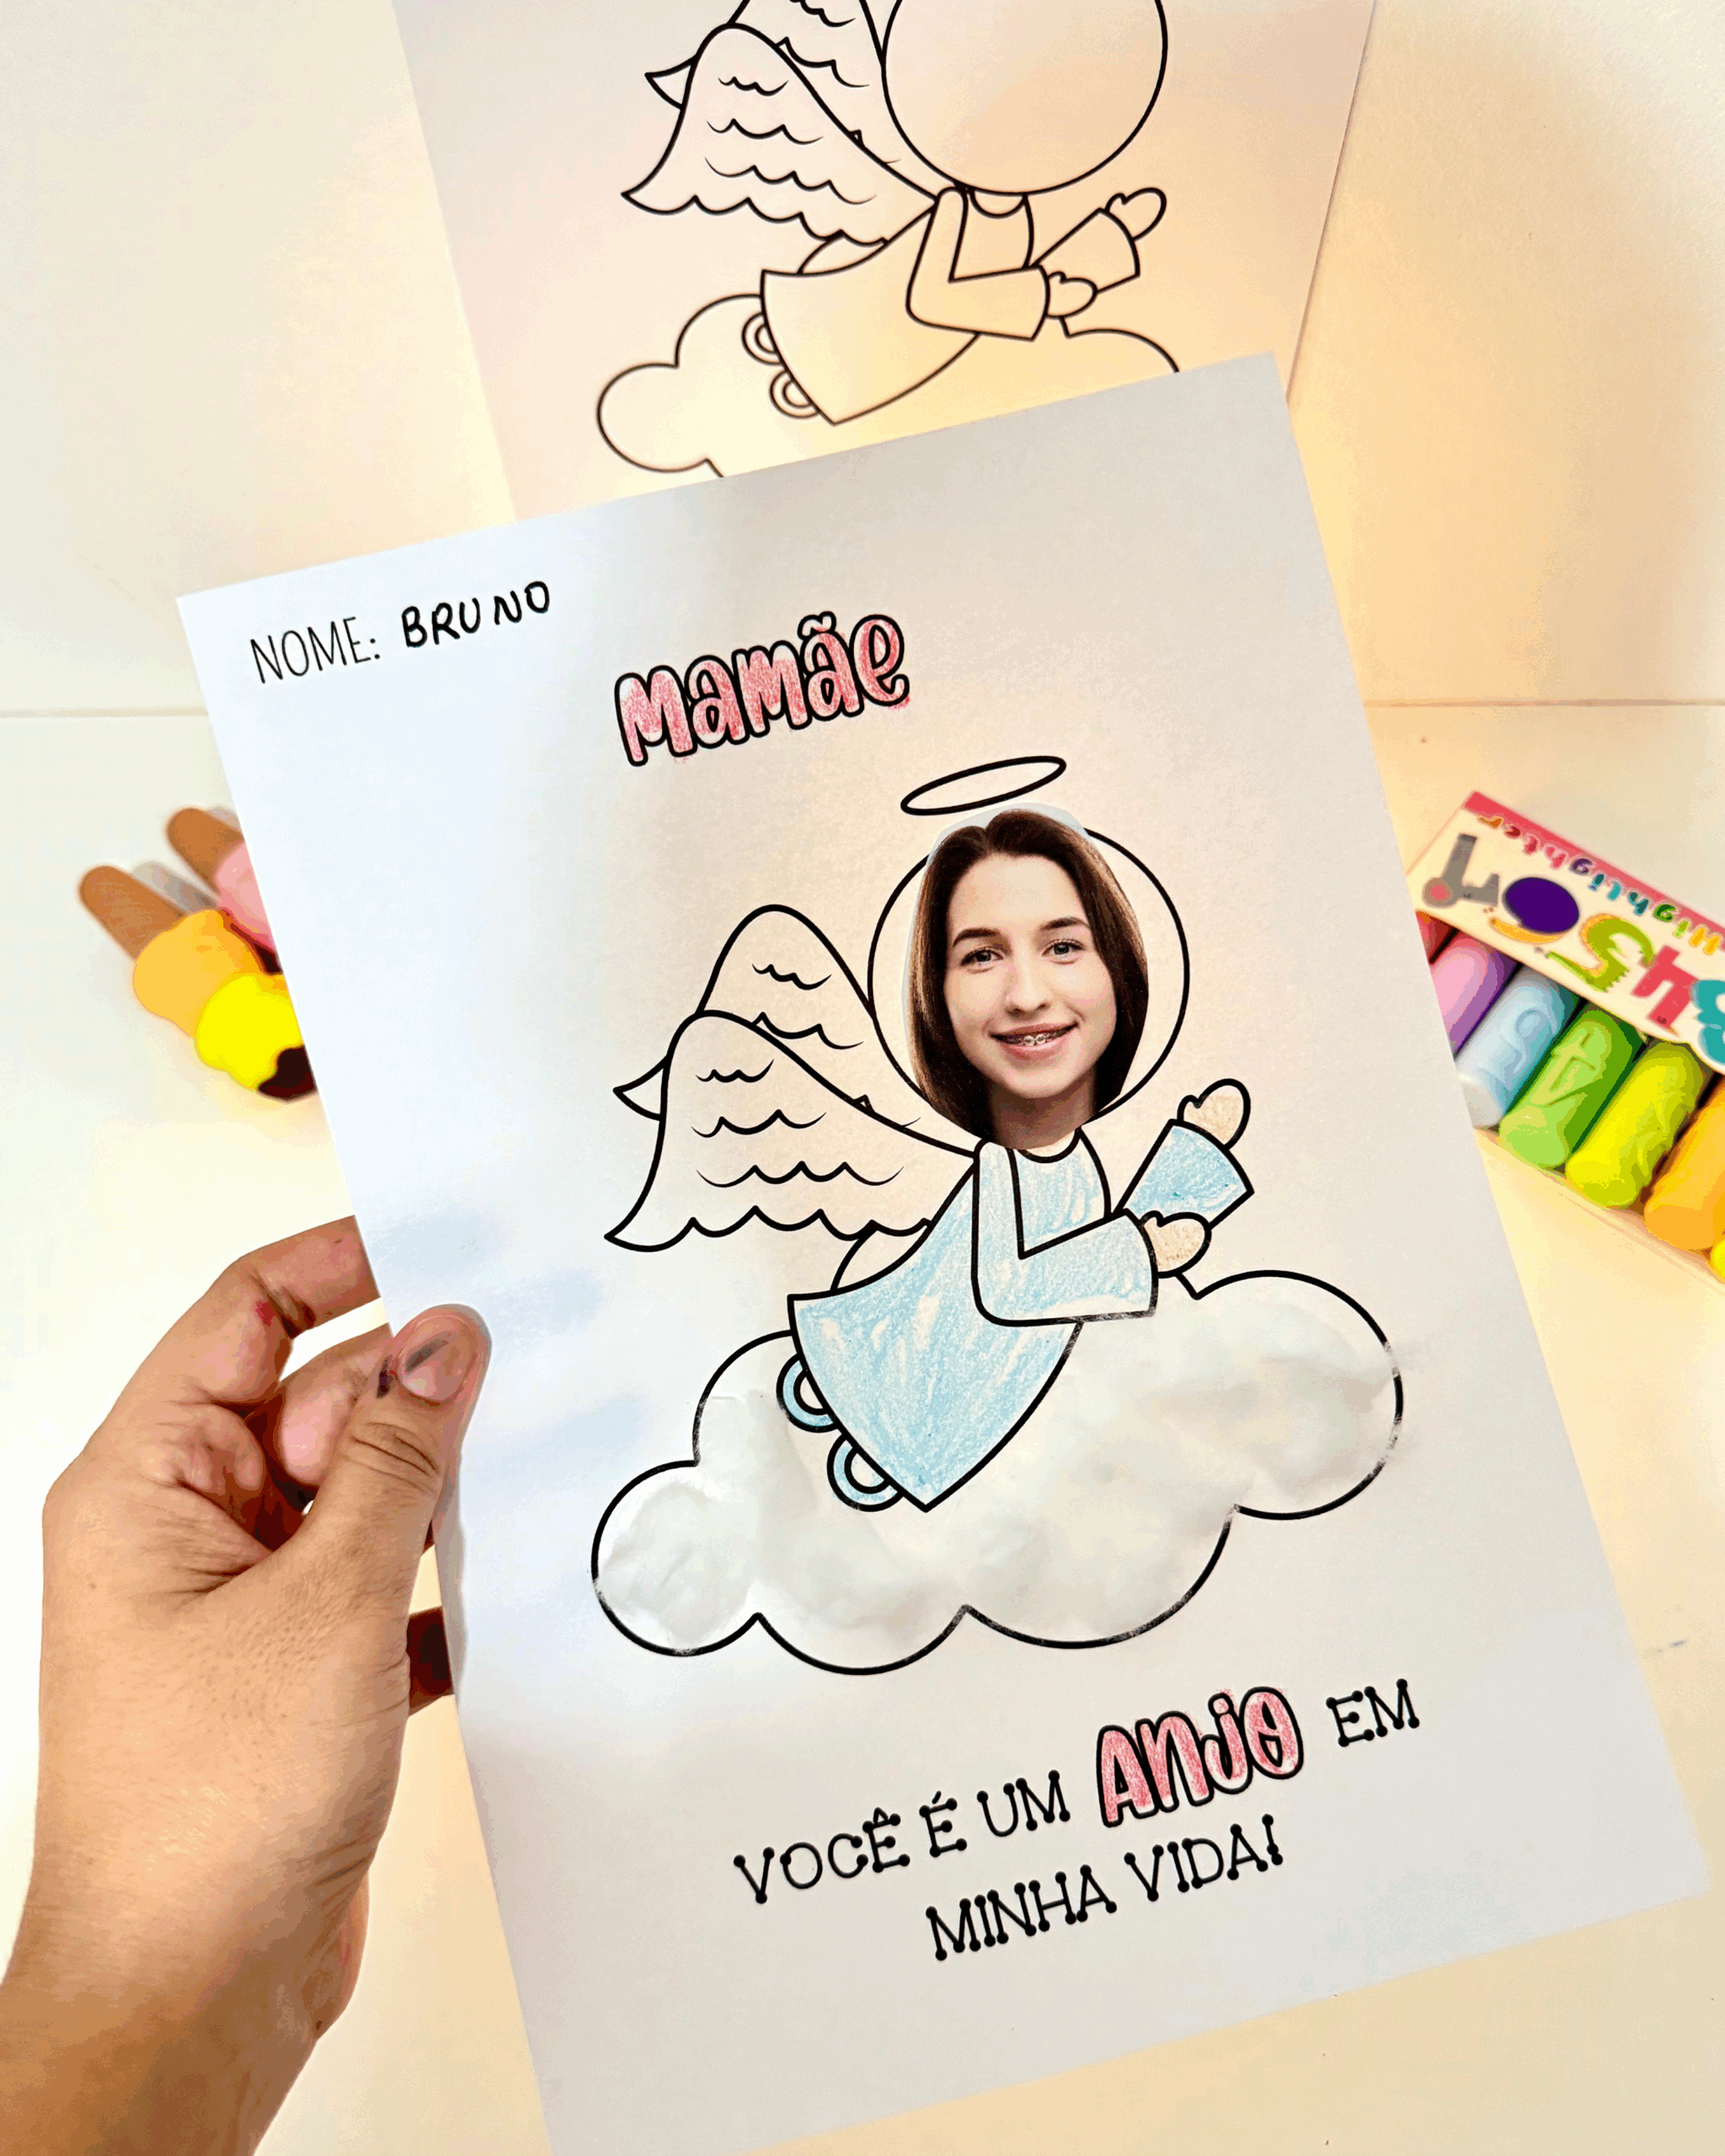 NOME: BRUNO
mamãe
VOCÊ É UM ANJO EM
MINHA VIDA!
Highlighter